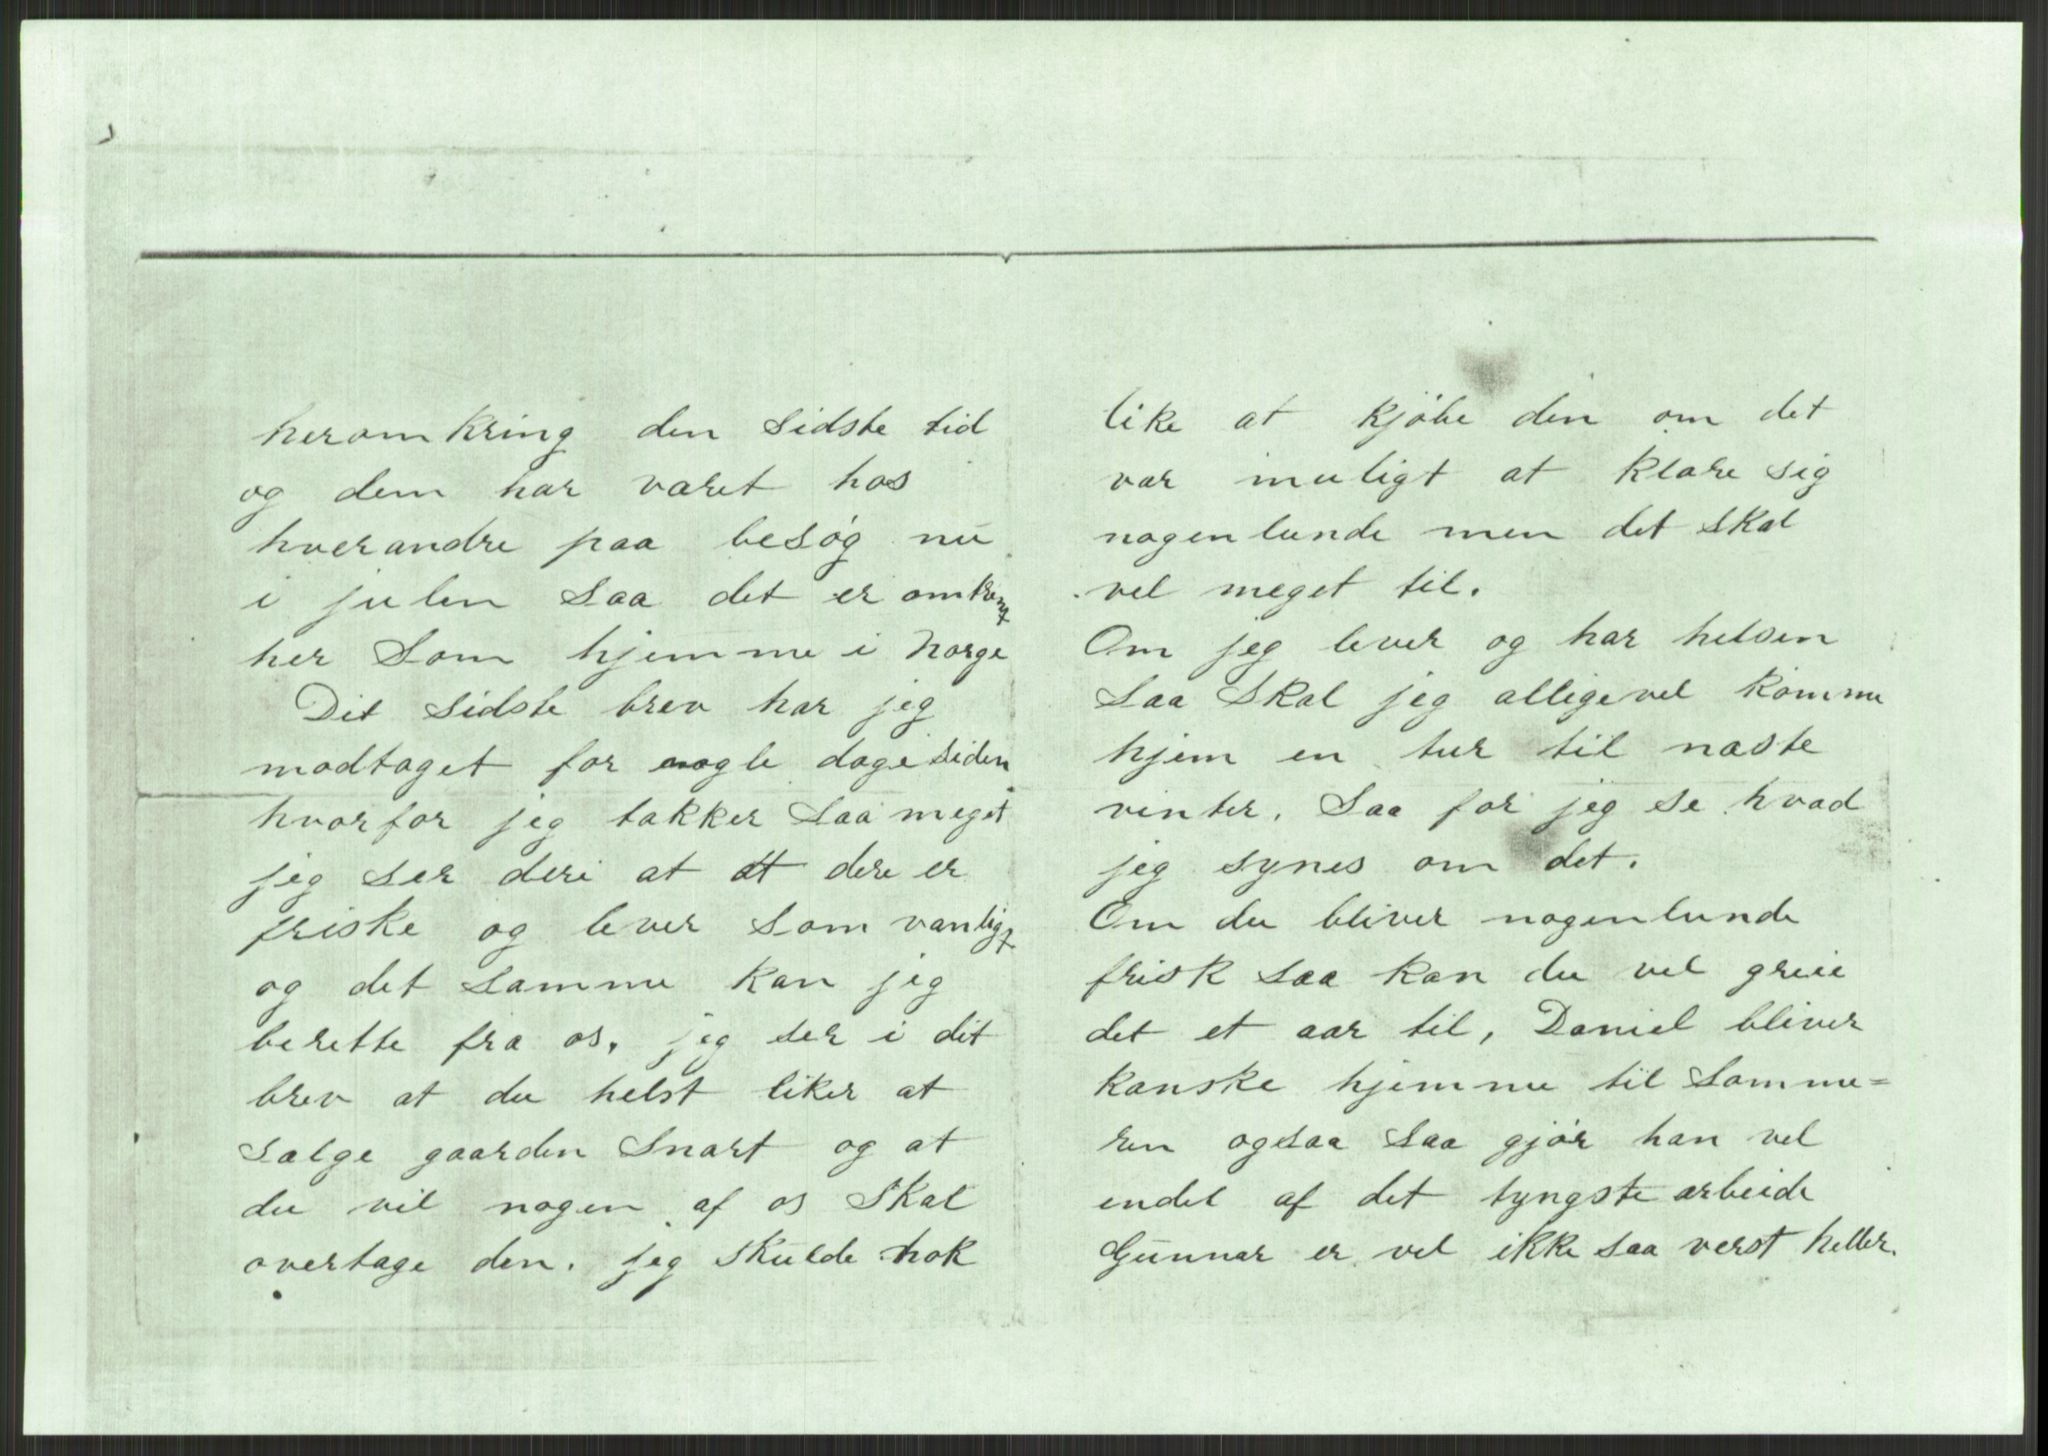 heromkring den sidste tid
og dem har været hos
hverandre paa besøg nu
i julen saa det er omtrent
her som hjemme i Norge
Dit sidste brev har jeg
modtaget for nogle dage siden
hvorfor jeg takker saa meget
jeg ser deri at dere er
friske og lever som vanligt
og det samme kan jeg
berette fra os, jeg ser i dit
brev at du helst liker at
sælge gaarden snart og at
du vil nogen af os skal
overtage den. jeg skulde nok
like at kjøbe den om det
var muligt at klare sig
nogenlunde men det skal
vel meget til.
Om jeg lever og har helsen
saa skal jeg alligevel komme
hjem en tur til næste
vinter. Saa for jeg se hvad
jeg synes om det.
Om du bliver nogenlunde
frisk saa kan du vel greie
det et aar til, Daniel bliver
kanske hjemme til Somme=
ren ogsaa saa gjør han vel
endel af det tyngste arbeide
Gunnar er vel ikke saa verst heller.